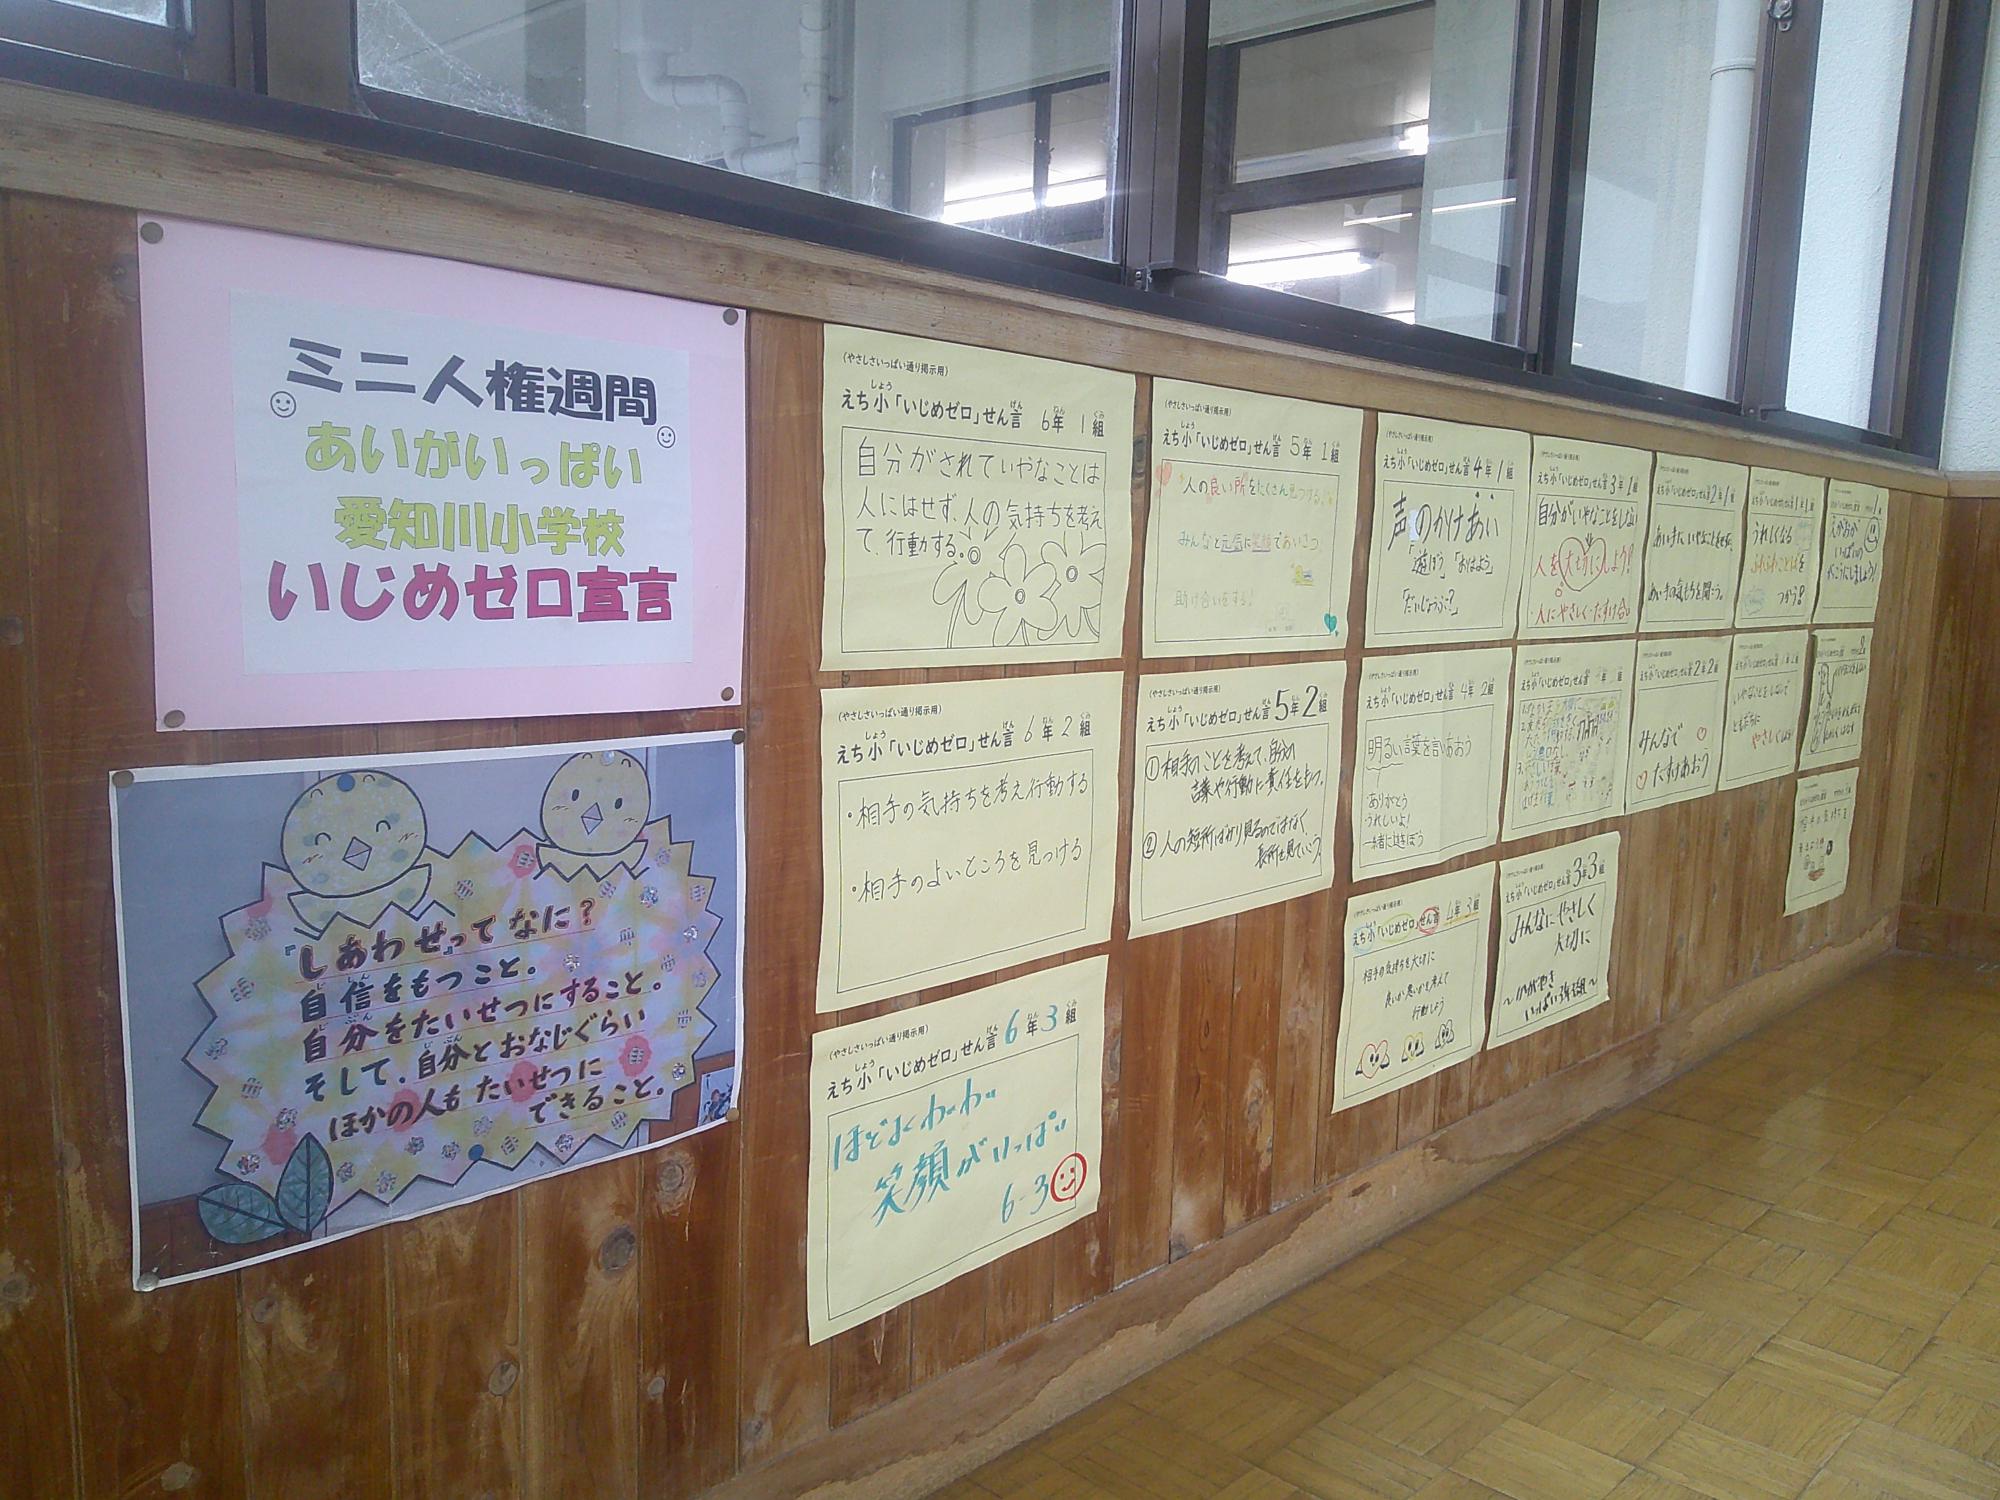 ミニ人権週間
あいがいっぱい
愛知川小学校
いじめゼロ宣言
『しあわせ』ってなに？
自信をもつこと。
自分をたいせつにすること。
そして、自分とおなじぐらい
ほかの人もたいせつに
できること。
(やさしさいっぱい通り掲示用)
えち小「いじめゼロ」せん言 6年 1組
自分がされていやなことは
人にはせず、人の気持ちを考え
て、行動する。
(やさしさいっぱい通り掲示用)
えち小「いじめゼロ」せん言 6年 2組
・相手の気持ちを考え行動する
・相手のよいところを見つける
(やさしさいっぱい通り掲示用)
えち小「いじめゼロ」せん言 6年3組
ほどよくわいわい
笑顔がいっぱい
6-3
(やさしさいっぱい通り掲示用)
えち小「いじめゼロ」せん言 5年 1組
人の良い所をたくさん見つける!
みんなと元気に笑顔であいさつ
助け合いをする!
(やさしさいっぱい通り掲示用)
えち小「いじめゼロ」せん言 5年2組
①相手のことを考えて、自分の
言葉や行動に責任をもつ。
②人の短所ばかり見るのではなく、
長所も見ていこう。
(やさしさいっぱい通り掲示用)
えち小「いじめゼロ」せん言 4年 1組
声のかけあい
「遊ぼう」「おはよう」
「だいじょうぶ?」
(やさしさいっぱい通り掲示用)
えち小「いじめゼロ」せん言 4年 2組
明るい言葉を言いあおう
ありがとう
うれしいよ!
一緒に遊ぼう
えち小「いじめゼロ」せん言 4年 3組
相手の気持ちを大切に
良いか悪いかを考えて
行動しよう
えち小「いじめゼロ」せん言 3年 1組
自分がいやなことをしない
人を大切にしよう!
人にやさしく・たすけ合い
えち小「いじめゼロ」せん言
えち小「いじめゼロ」せん言 3年3組
みんなにやさしく
大切に
〜かがやき
いっぱい3年3組〜
えち小「いじめゼロ」せん言 2年 1組
あい手の気もちを聞こう。
えち小「いじめゼロ」せん言 2年 2組
みんなで
たすけあおう
えち小「いじめゼロ」せん言 1年 1組
うれしくなる
ふわふわことばを
つかう!
ともだちに
やさしくしよう
えがおが
いっぱいの